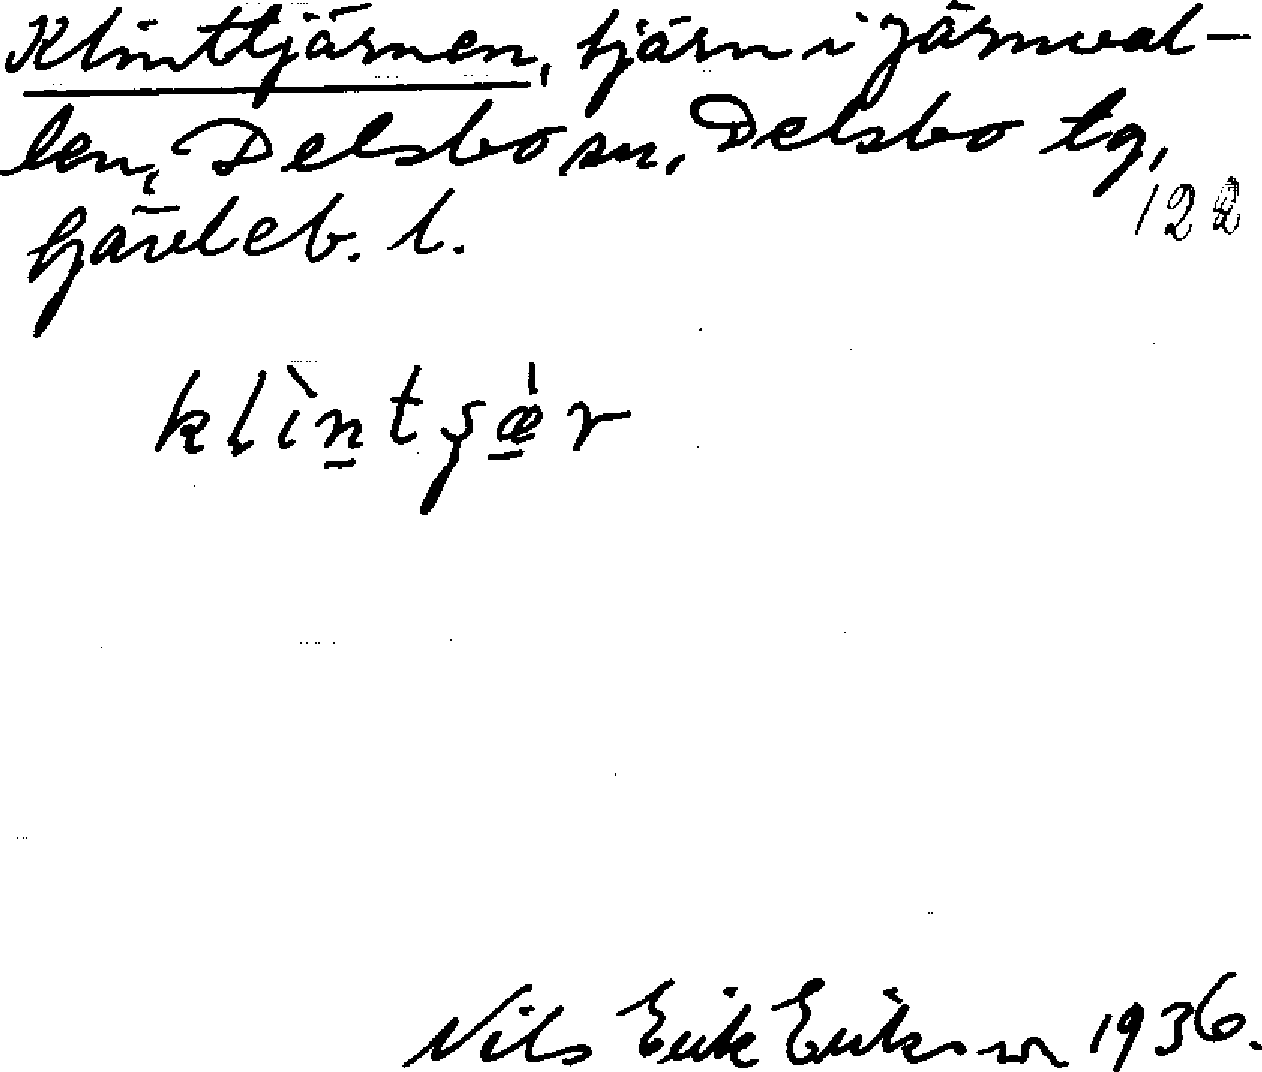 Klinttjärnen, tjärn i Järnval-
len, Delsbo sn, Delsbo tg,
Gävleb. l.
122
Nils Erik Eriksson 1936.